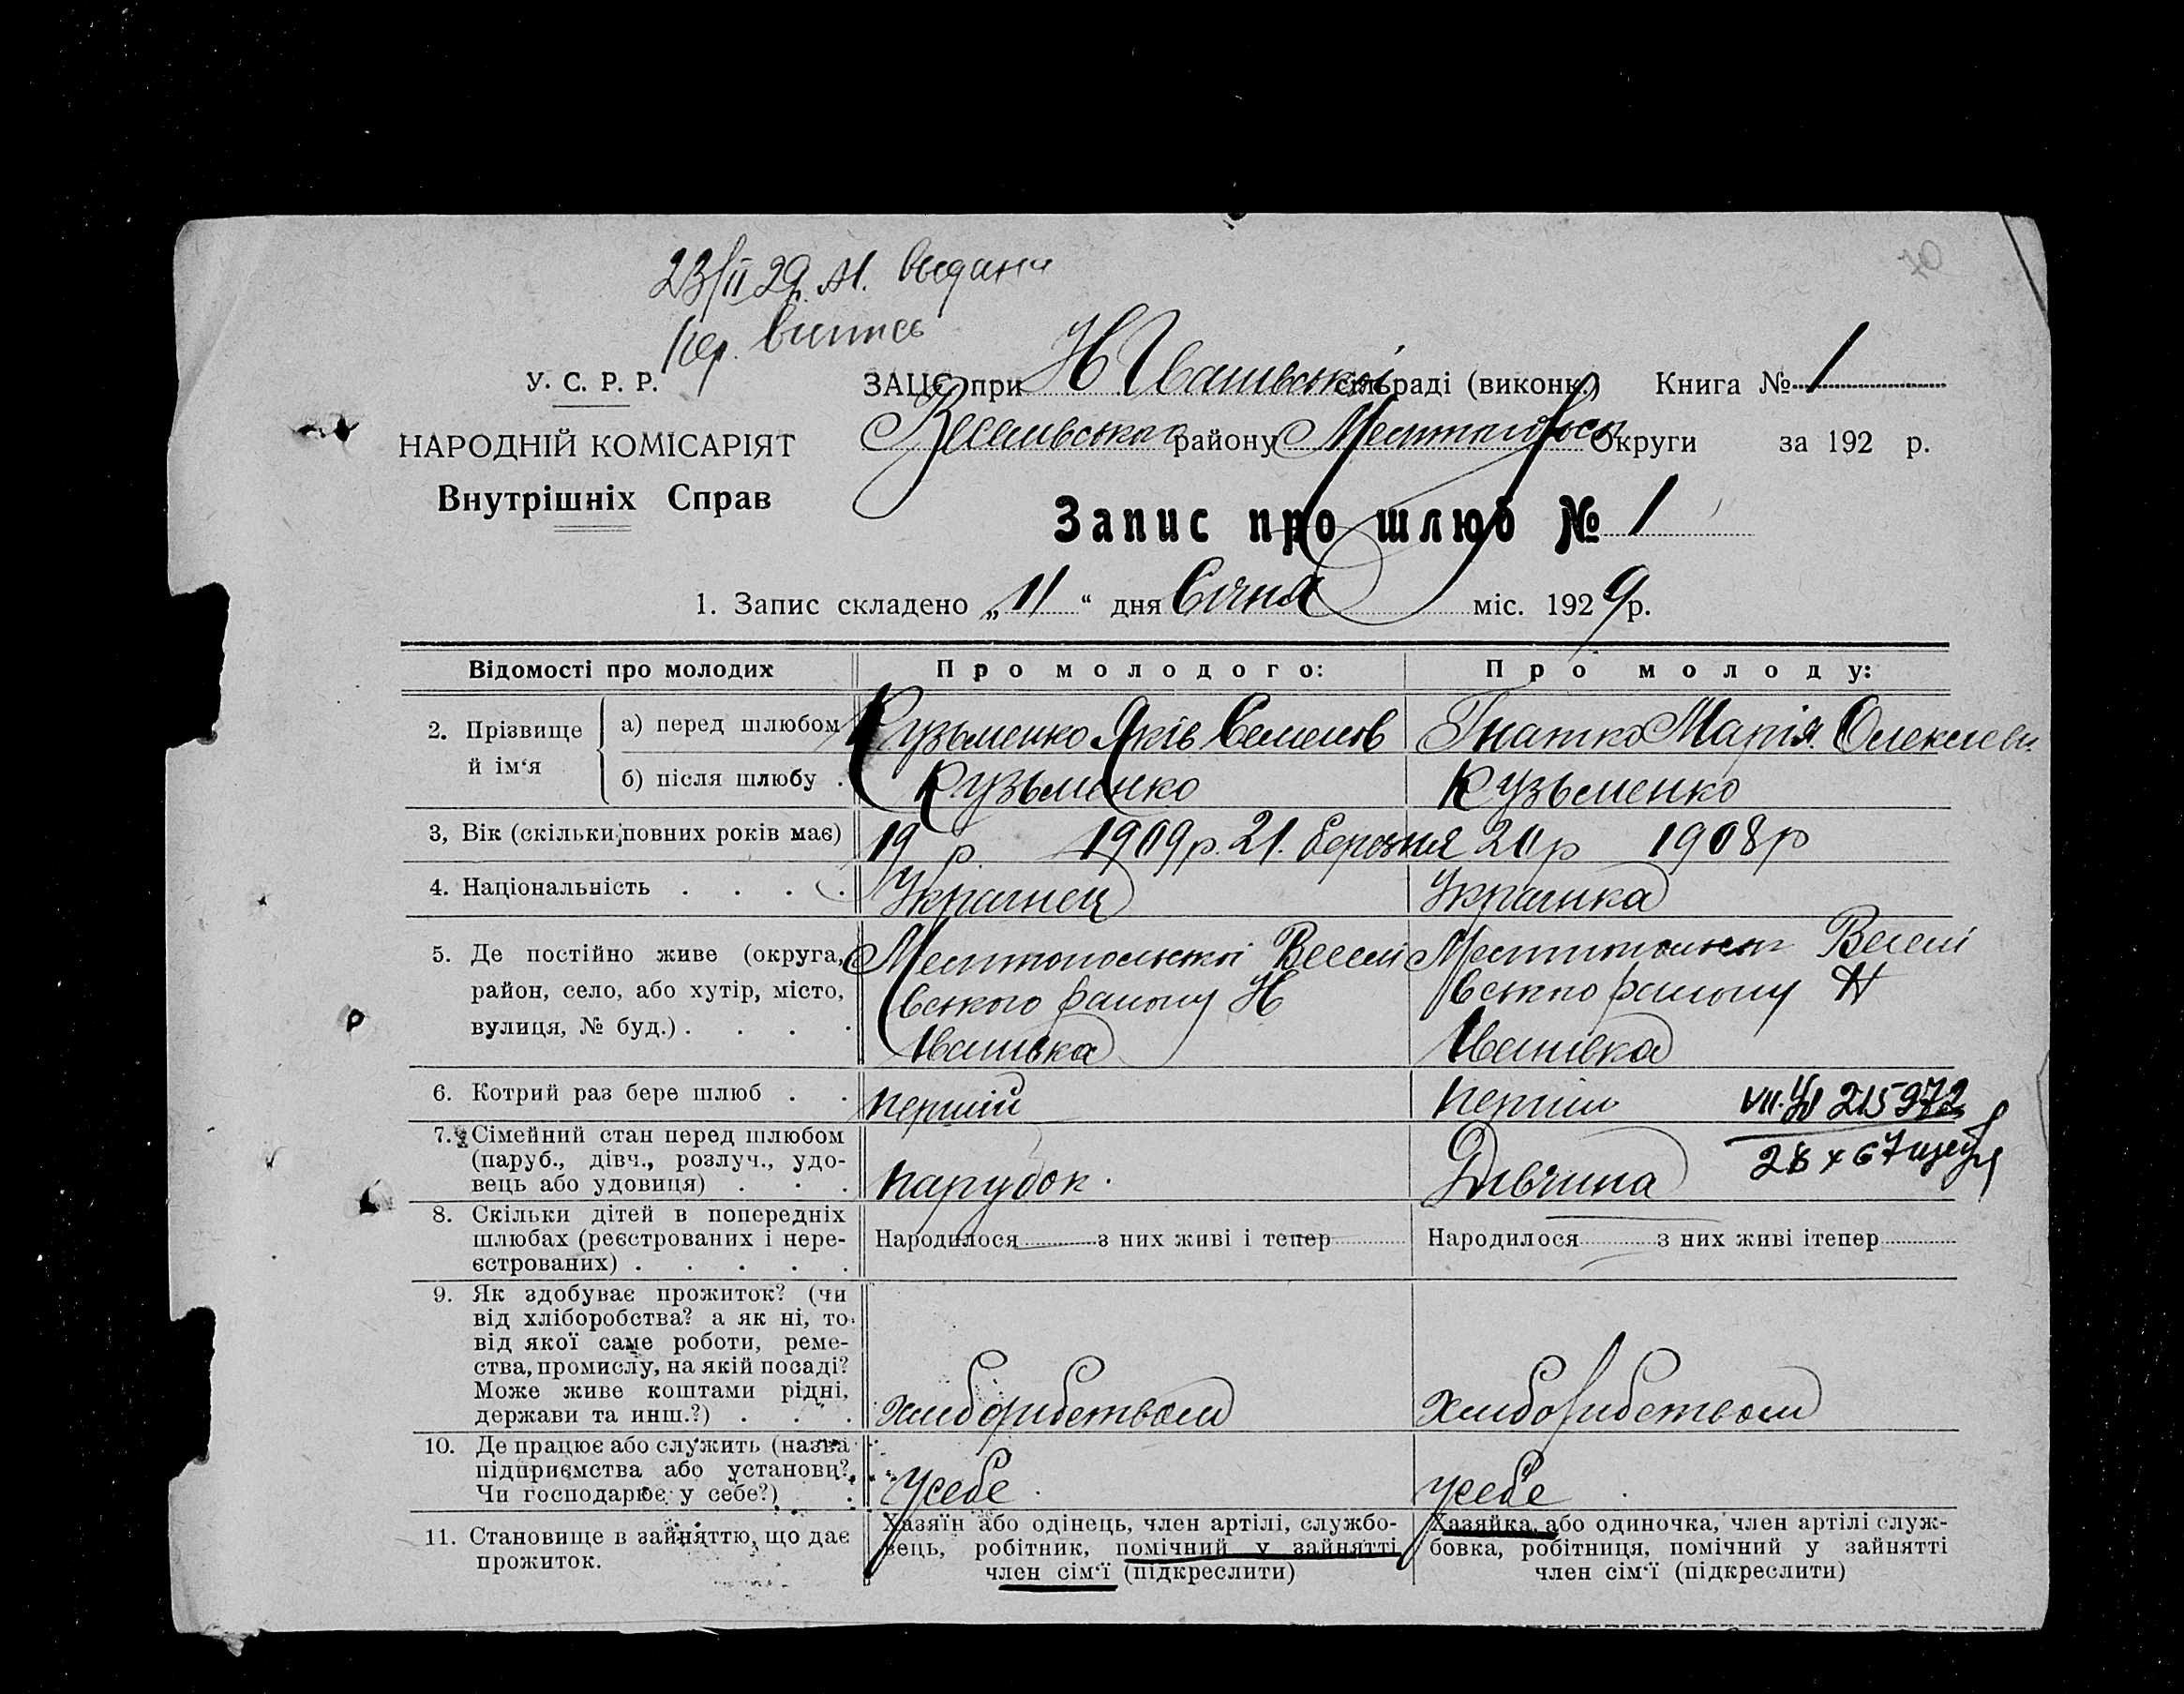 70
23/II 29 видани
У. С. Р. Р.
НАРОДНІЙ КОМІСАРІЯТ
Внутрішніх Справ
ЗАЦС при Н Іванівської сільраді (виконк.) Книга № 1
Веселівського району Округи за 192 р.
Запис про шлюб № 1
1. Запис складено „11“ дня Січня міс. 1929 р.
Відомості про молодих Про молодого: Про молоду:
2. Прізвище й ім‘я
а) перед шлюбом Кузьменко Яків Семенов Гнатко Марія
б) після шлюбу . Кузьменко Кузьменко
3, Вік (скільки повних років має) 19 р. 1909 р. 21. березня 20 р 1908 р
4. Національність . . . . Українец Українка
5. Де постійно живе (округа, район, село, або хутір, місто, вулиця, № буд.) . . . .
Мелітопольської Веселі
вського району Н
Іванівка
Веселі
вського району Н
Іванівка
6. Котрий раз бере шлюб . . перший
215972
7. Сімейний стан перед шлюбом
(паруб., дівч., розлуч., удо-
вець або удовиця) . . . парубок. Дивчина
8. Скільки дітей в попередніх
шлюбах (реєстрованих і нере-
єстрованих) . . . . .
Народилося з них живі і тепер Народилося з них живі ітепер
9. Як здобуває прожиток? (чи
від хліборобства? а як ні, то
від якої саме роботи, реме-
ства, промислу, на якій посаді?
Може живе коштами рідні,
держави та инш.?) . . . хліборобством хліборобством
10. Де працює або служить (назва
підприємства або установи?
Чи господарює у себе?) . усебе усебе
11. Становище в зайняттю, що дає
прожиток.
Хазяїн або одінець, член артілі, службо-
вець, робітник, помічний у зайнятті
член сім‘ї (підкреслити)
Хазяйка, або одиночка, член артілі служ-
бовка, робітниця, помічний у зайнятті
член сім‘ї (підкреслити)